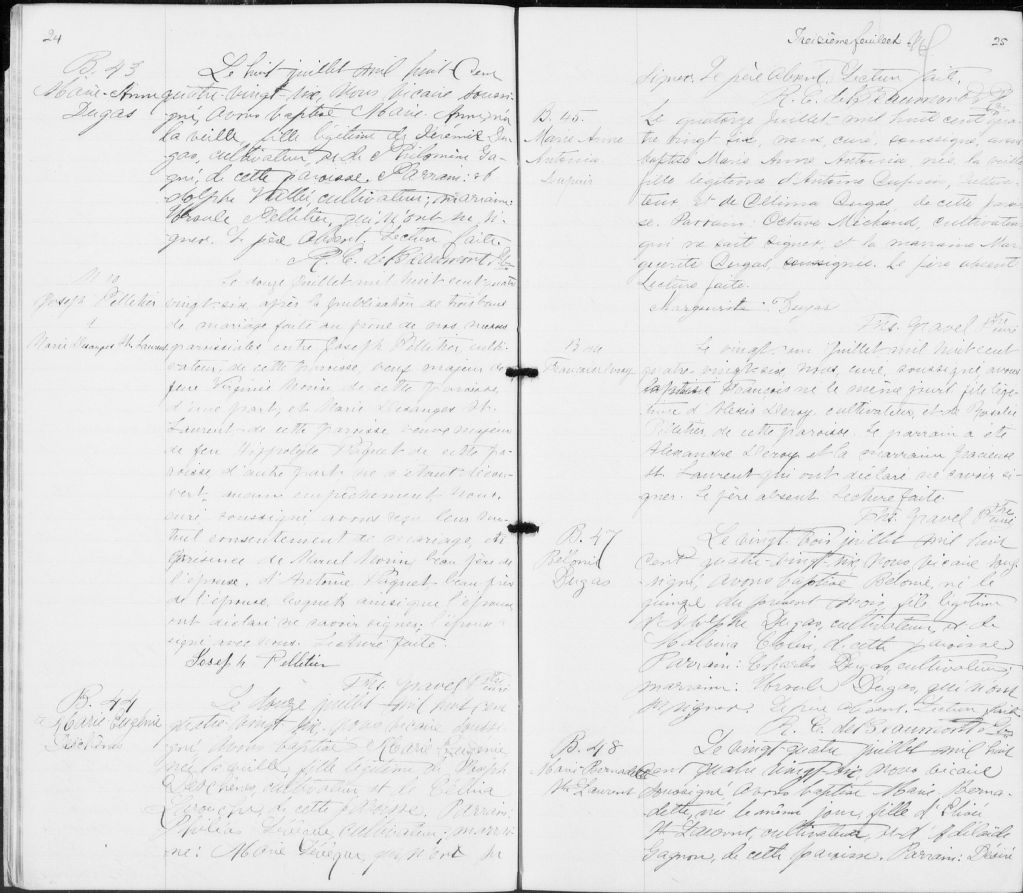 24
B. 43
Marie-Anne
Dugas
Le huit juillet mil huit cent
quatre-vingt six, nous vicaire soussi-
gné, avons baptisé Marie-Anne, née
la veille, fille légitime de Jérémie Du-
gas, cultivateur, et de Philomène Ga-
gné, de cette paroisse. Parrain:
Vallée, cultivateur; marraine:
Ursule Pelletier, qui n'ont su si-
gner. Le père absent. Lecture faite.
R. C. de Beaumont
Joseph Pelletier
&
Marie Desanges St. Laurent
Le douze juillet mil huit cent quatre
vingt-six, après la publication de trois bans
de mariage faite au prône de nos messes
paroissiales entre Joseph Pelletier culti-
vateur, de cette paroisse, veuf majeur de
feue Virginie Morin de cette paroisse,
d'une part, et Marie Desanges St.
Laurent de cette paroisse veuve majeure
de feu Hippolyte Paquet de cette pa-
roisse d'autre part, ne s'étant décou-
vert, aucun empêchement nous,
curé soussigné avons reçu leur mu-
tuel consentement de mariage, en
présence de Marcel Morin, beau père de
l'époux, d'Antoine Paquet beau père
de l'épouse, lesquels ainsi que l'épouse
ont déclaré ne savoir signer; l'époux
signé avec nous. Lecture faite.
Joseph Pelletier
Frs. Gravel Ptre curé
B. 44
Marie Eugénie
Deschênes
Le douze juillet mil huit cent
quatre-vingt six, nous vicaire soussi-
gné, avons baptisé Marie Eugénie,
née la veille, fille légitime de Joseph
Deschênes, cultivateur et de
de cette paroisse. Parrain:
cultivateur; marrai-
ne: Marie qui n'ont su
Troisième feuillet
25
signer. Le père absent. Lecture faite.
R. C. de Beaumont Ptre
B. 45
Marie Anne
Antonia
Dupuis
Le quatorze juillet mil huit cent qua-
tre vingt six, nous, curé, soussigné, avons
baptisé Marie Anne Antonia, née la veille
fille légitime d'Antoine Dupuis, cultiva-
teur et de Célima Dugas de cette parois-
se. Parrain: Octave Michaud, cultivateur
qui ne sait signer, et la marraine Mar-
guerite Dugas, soussignée. Le père absent
Lecture faite.
Marguerite Dugas
Frs. Gravel Ptre curé
François Leroy
Le vingt juillet mil huit cent
quatre-vingt-six nous, curé, soussigné avons
baptisé François né le même jour, fils légi-
time d'Alexis Leroy cultivateur, et de Rosalie
Pelletier, de cette paroisse. Le parrain a été
Alexandre Leroy et la marraine
St. Laurent qui ont déclaré ne savoir si-
gner. Le père absent. Lecture faite.
Frs. Gravel Ptre curé
B. 47
Bélonie
Dugas
Le vingt trois juillet mil huit
cent quatre-vingt six, nous vicaire sous-
signé, avons baptisé Bélonie, né le
quinze du présent mois, fils légitime
d'Adolphe Dugas, cultivateur, et de
de cette paroisse
Parrain: Charles Dugas, cultivateur;
marraine: Ursule Dugas, qui n'ont
su signer. Le père absent. Lecture faite
R. C. de Beaumont Ptre
B. 48
Marie Bernadette
St. Laurent
Le vingt-quatre juillet mil huit
cent quatre vingt-six, nous vicaire
soussigné, avons baptisé Marie Berna-
dette, née le même jour, fille d'Elisée
St. Laurent, cultivateur, et d'Adélaïde
Gagnon, de cette paroisse. Parrain: Désiré